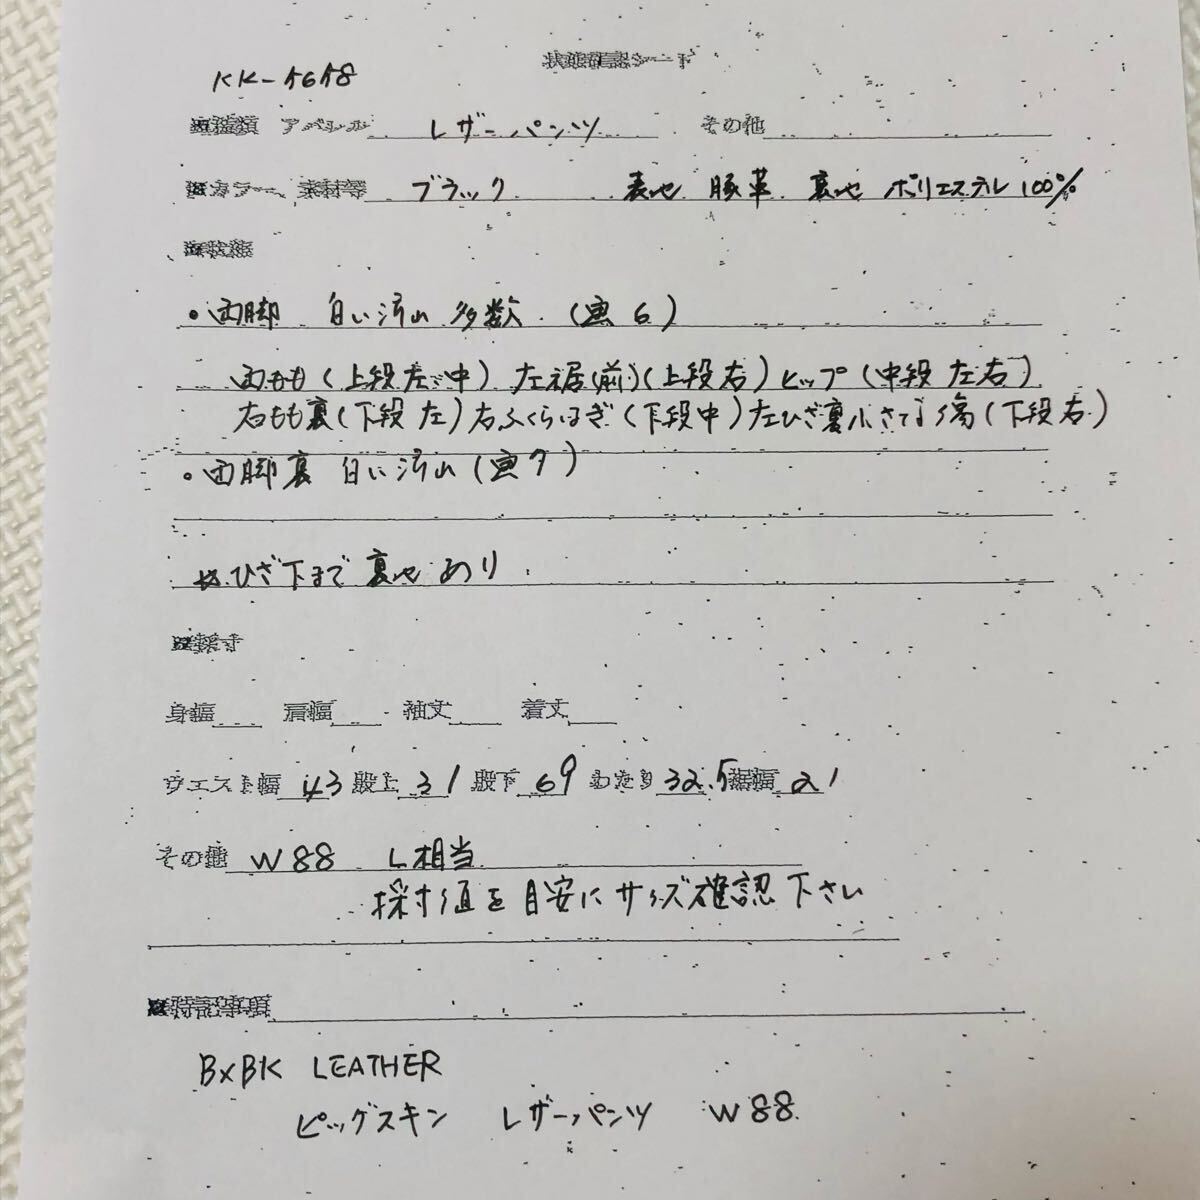 状態確認シート
KK-1618
※種類 アパレル レザーパンツ その他
※カラー、素材等 ブラック 表地 豚革 裏地 ポリエステル100%
※状態
・両脚 白い汚れ 多数 (画6)
両もも(上段左・中) 左裾(前)(上段右) ヒップ(中段 左右)
右もも裏(下段 左) 右ふくらはぎ(下段中) 左ひざ裏小さな傷(下段右)
・両脚裏 白い汚れ(画7)
ひざ下まで裏地あり
※採寸
身幅 肩幅 袖丈 着丈
ウエスト幅 43 股上 31 股下 69 わたり 32.5 裾幅 21
その他 W88 L相当
採寸値を目安にサイズ確認下さい
※特記事項
B×BK LEATHER
ピッグスキン レザーパンツ W88